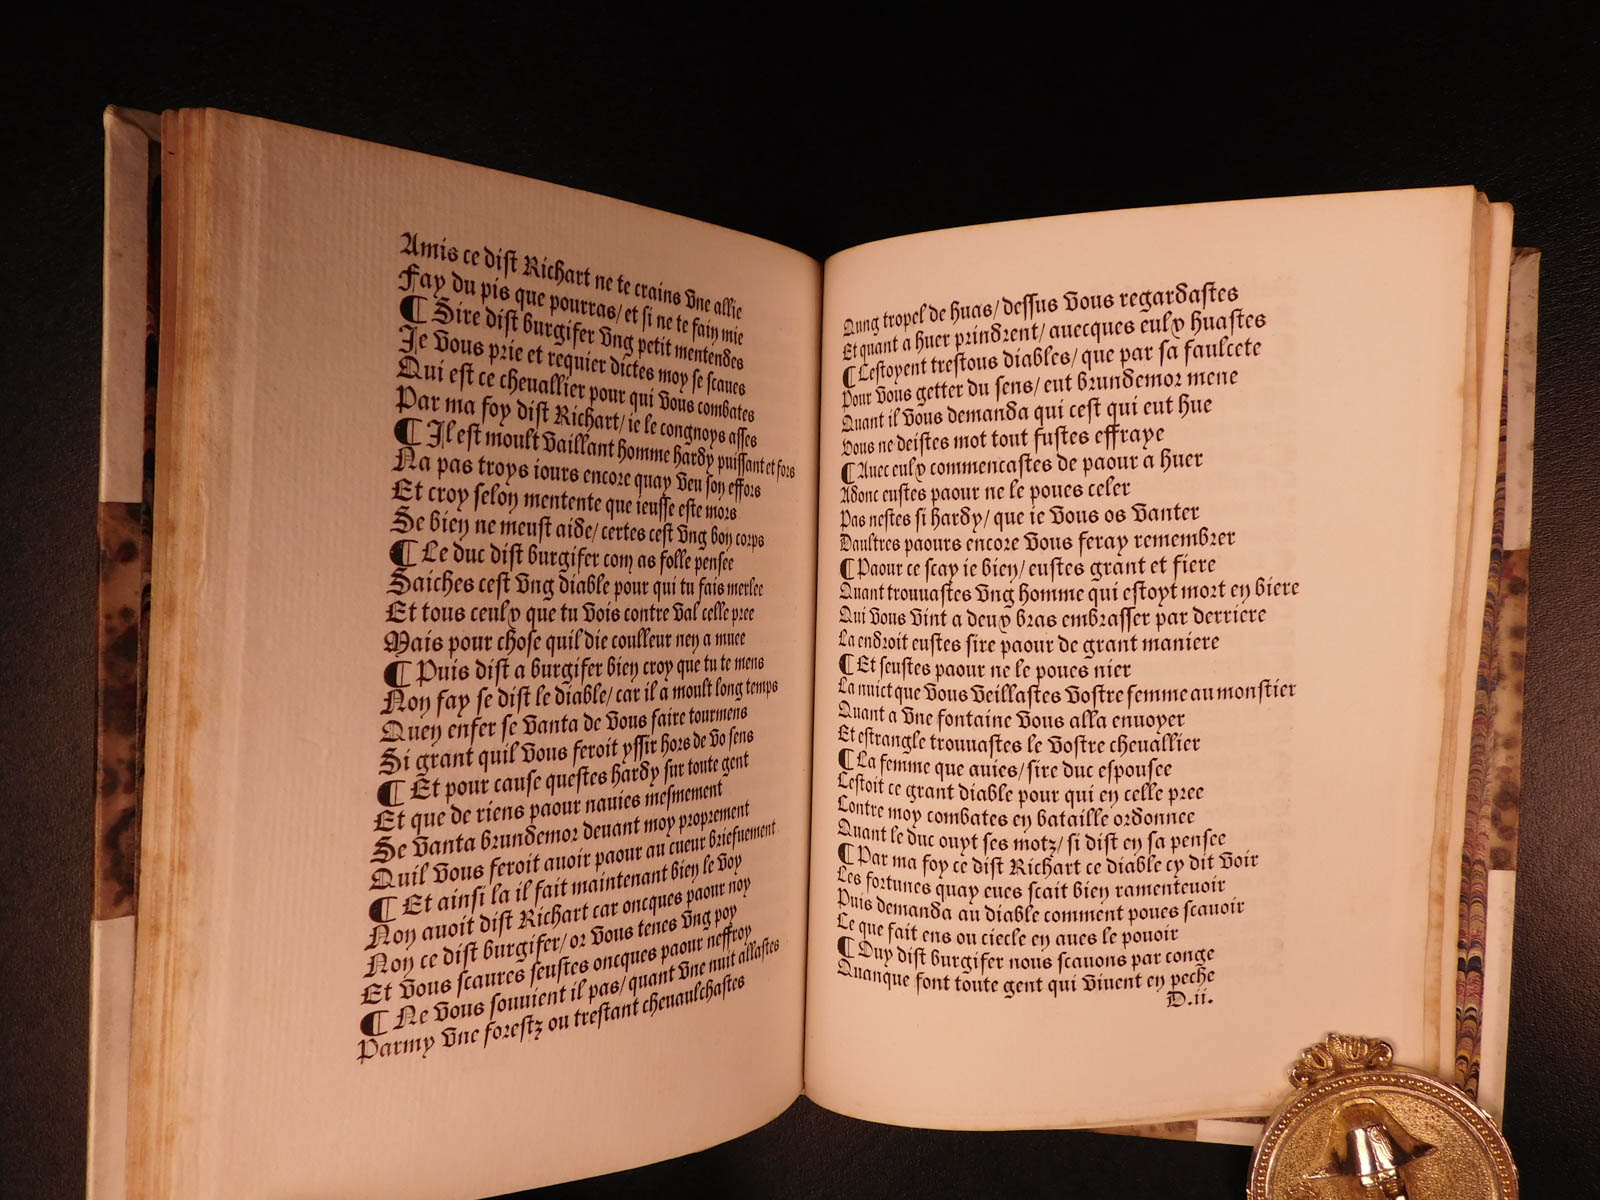 Amis ce dist Richart ne te crains vne allie
Fay du pis que pourras/ et si ne te fain mie
¶ Sire dist burgifer vng petit mentendes
Je vous prie et requier dictes moy se scaues
Qui est ce cheuallier pour qui vous combates
Par ma foy dist Richart/ ie le congnoys asses
¶ Il est moult vaillant homme hardy puissant et fors
Na pas troys iours encore quay veu son effors
Et croy selon mentente que ieusse este mors
Se bien ne meust aide/ certes cest vng bon corps
¶ Le duc dist burgifer com as folle pensee
Saiches cest vng diable pour qui tu fais merlee
Et tous ceulx que tu vois contre val celle pree
Mais pour chose quil die coulleur nen a muee
¶ Puis dist a burgifer bien croy que tu te mens
Non fay se dist le diable/ car il a moult long temps
Quen enfer se vanta de vous faire tourmens
Si grant quil vous feroit yssir hors de vo sens
¶ Et pour cause questes hardy sur toute gent
Et que de riens paour nauies mesmement
Se vanta brundemor deuant moy proprement
Quil vous feroit auoir paour au cueur briefuement
¶ Et ainsi la il fait maintenant bien le voy
Non auoit dist Richart car oncques paour noy
Non ce dist burgifer/ or vous tenes vng poy
Et vous scaures seustes oncques paour neffroy
¶ Ne vous souuient il pas/ quant vne nuit allastes
Parmy vne forestz ou trestant cheuaulchastes
Qung tropel de huas/ dessus vous regardastes
Et quant a huer prindrent/ auecques eulx huastes
¶ Cestoyent trestous diables/ que par sa faulcete
Pour vous getter du sens/ eut brundemor mene
Quant il vous demanda qui cest qui eut hue
Vous ne deistes mot tout fustes effraye
¶ Auec eulx commencastes de paour a huer
Adonc eustes paour ne le poues celer
Pas nestes si hardy/ que ie vous os vanter
Daultres paours encore vous feray remembrer
¶ Paour ce scay ie bien/ eustes grant et fiere
Quant trouuastes vng homme qui estoyt mort en biere
Qui vous vint a deux bras embrasser par derriere
La endroit eustes sire paour de grant maniere
¶ Et seustes paour ne le poues nier
La nuict que vous veillastes vostre femme au monstier
Quant a vne fontaine vous alla enuoyer
Et estrangle trouuastes le vostre cheuallier
¶ La femme que auies/ sire duc espousee
Cestoit ce grant diable pour qui en celle pree
Contre moy combates en bataille ordonnee
Quant le duc ouyt ses motz/ si dist en sa pensee
¶ Par ma foy ce dist Richart ce diable cy dit voir
Les fortunes quay eues scait bien ramenteuoir
Puis demanda au diable comment poues scauoir
Ce que fait ens ou ciecle en aues le pouoir
¶ Ouy dist burgifer nous scauons par conge
Quanque font toute gent qui viuent en peche
D.ii.